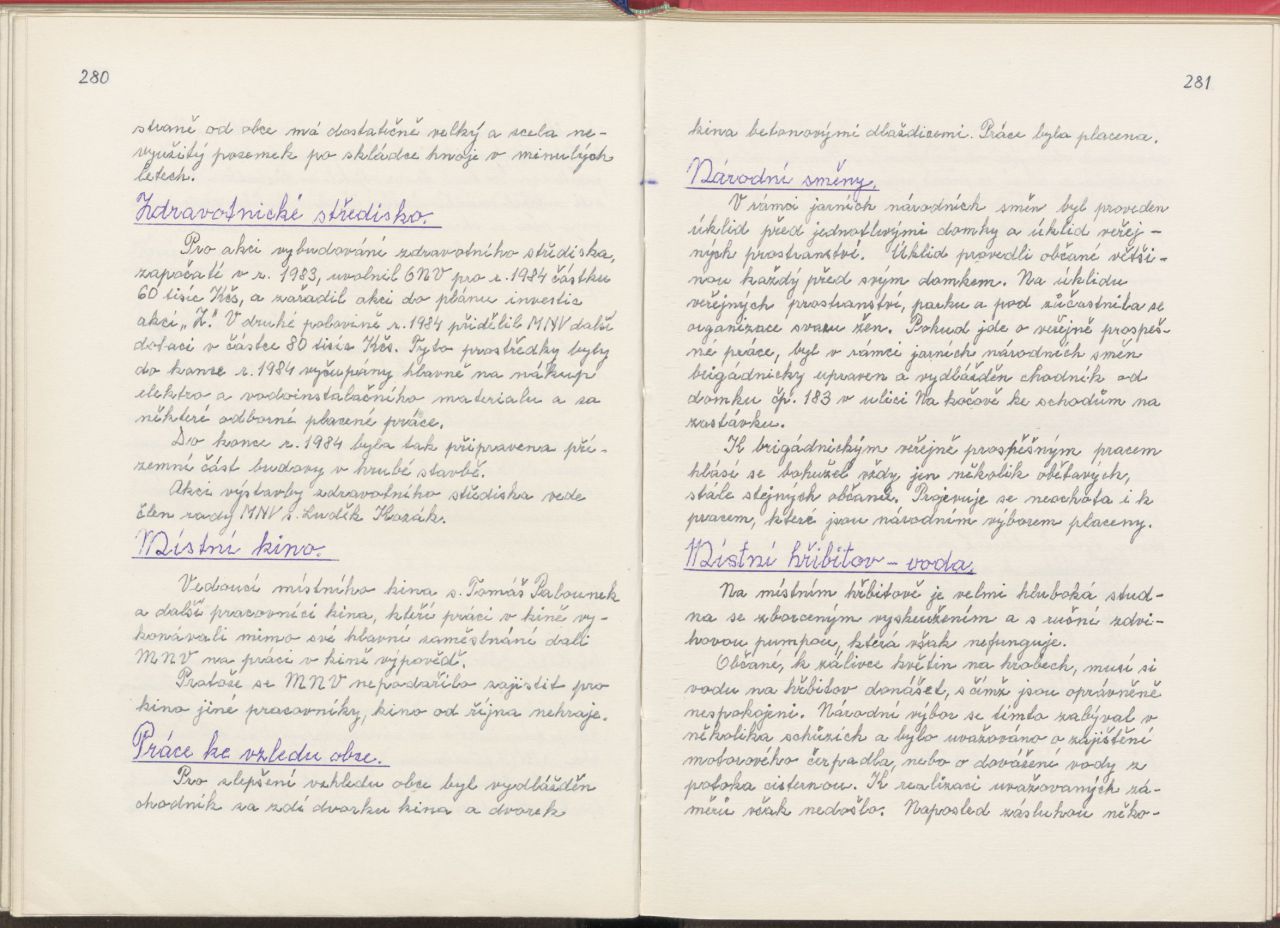 280
straně od obce má dostatečně velký a zcela ne-
využitý pozemek po skládce hnoje v minulých
letech.
Zdravotnické středisko.
Pro akci vybudování zdravotního střediska,
započatí v r. 1983, uvolnil ONV pro r. 1984 částku
60 tisíc Kčs, a zařadil akci do plánu investic
akcí „Z." V druhé polovině r. 1984 přidělil MNV další
dotaci v částce 80 tisíc Kčs. Tyto prostředky byly
do konce r. 1984 vyčupany hlavně na nákup
elektro a vodoinstalačního materialu a za
některé odborné placené práce.
Do konce r. 1984 byla tak připravena pří-
zemní část budovy v hrubé stavbě.
Akci výstavby zdravotního střediska vede
člen rady MNV s. Luděk Kozák.
Místní kino.
Vedoucí místního kina s. Tomáš Palounek
a další pracovníci kina, kteří práci v kině vy-
konávali mimo své hlavní zaměstnání dali
MNV na práci v kině výpovědě.
Protože se MNV nepodařilo zajistit pro
kino jiné pracovníky, kino od října nehraje.
Práce ke vzledu obce.
Pro zlepšení vzhledu obce byl vydlážděn
chodník za zdí dvorku kina a dvorek
281
kina betonovými dlaždicemi. Práce byla placena.
Národní směny.
V rámci jarních národních směn byl proveden
úklid před jednotlivými domky a úklid veřej-
ných prostranství. Úklid provedli občané větši-
nou každý před svým domkem. Na úklidu
veřejných prostranství, parku a pod zůčastnila se
organizace svazu žen. Pokud jde o veřejně prospěš-
né práce, byl v rámci jarních národních směn
brigádnicky upraven a vydlážděn chodník od
domku čp. 183 v ulici Na kočově ke schodům na
zastávku.
K brigádnickým veřejně prospěšným pracem
hlásí se bohužel vždy jen několik obětavých,
stále stejných občanů. Projevuje se neochota i k
pracem, které jsou národním výborem placeny.
Místní hřbitov – voda.
Na místním hřbitově je velmi hluboká stud-
na se zborceným vyskužením a s ruční zdvi-
hovou pumpou, která však nefunguje.
Občané, k zálivce květin na hrobech, musí si
vodu na hřbitov donášet, s čímž jsou oprávněně
nespokojeni. Národní výbor se tímto zabýval v
několika schůzích a bylo uvažováno o zajištění
motorového čerpadla, nebo o dovážení vody z
potoka cisternou. K realizaci uvažovaných zá-
měrů však nedošlo. Naposled zásluhou něko-